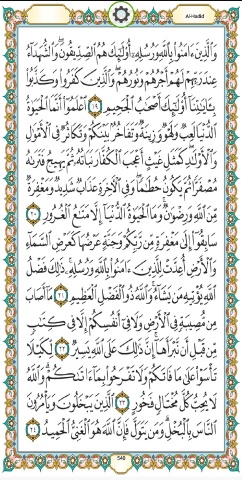 Al-Hadid
وَٱلَّذِينَ ءَامَنُوا۟ بِٱللَّهِ وَرُسُلِهِۦٓ أُو۟لَٰٓئِكَ هُمُ ٱلصِّدِّيقُونَ ۖ وَٱلشُّهَدَآءُ
عِندَ رَبِّهِمْ لَهُمْ أَجْرُهُمْ وَنُورُهُمْ ۖ وَٱلَّذِينَ كَفَرُوا۟ وَكَذَّبُوا۟
بِـَٔايَٰتِنَآ أُو۟لَٰٓئِكَ أَصْحَٰبُ ٱلْجَحِيمِ ١٩ ٱعْلَمُوٓا۟ أَنَّمَا ٱلْحَيَوٰةُ
ٱلدُّنْيَا لَعِبٌ وَلَهْوٌ وَزِينَةٌ وَتَفَاخُرٌۢ بَيْنَكُمْ وَتَكَاثُرٌ فِى ٱلْأَمْوَٰلِ
وَٱلْأَوْلَٰدِ ۖ كَمَثَلِ غَيْثٍ أَعْجَبَ ٱلْكُفَّارَ نَبَاتُهُۥ ثُمَّ يَهِيجُ فَتَرَىٰهُ
مُصْفَرًّا ثُمَّ يَكُونُ حُطَٰمًا ۖ وَفِى ٱلْـَٔاخِرَةِ عَذَابٌ شَدِيدٌ وَمَغْفِرَةٌ
مِّنَ ٱللَّهِ وَرِضْوَٰنٌ ۚ وَمَا ٱلْحَيَوٰةُ ٱلدُّنْيَآ إِلَّا مَتَٰعُ ٱلْغُرُورِ ٢٠
سَابِقُوٓا۟ إِلَىٰ مَغْفِرَةٍ مِّن رَّبِّكُمْ وَجَنَّةٍ عَرْضُهَا كَعَرْضِ ٱلسَّمَآءِ
وَٱلْأَرْضِ أُعِدَّتْ لِلَّذِينَ ءَامَنُوا۟ بِٱللَّهِ وَرُسُلِهِۦ ۚ ذَٰلِكَ فَضْلُ
ٱللَّهِ يُؤْتِيهِ مَن يَشَآءُ ۚ وَٱللَّهُ ذُو ٱلْفَضْلِ ٱلْعَظِيمِ ٢١ مَآ أَصَابَ
مِن مُّصِيبَةٍ فِى ٱلْأَرْضِ وَلَا فِىٓ أَنفُسِكُمْ إِلَّا فِى كِتَٰبٍ
مِّن قَبْلِ أَن نَّبْرَأَهَآ ۚ إِنَّ ذَٰلِكَ عَلَى ٱللَّهِ يَسِيرٌ ٢٢ لِّكَيْلَا
تَأْسَوْا۟ عَلَىٰ مَا فَاتَكُمْ وَلَا تَفْرَحُوا۟ بِمَآ ءَاتَىٰكُمْ ۗ وَٱللَّهُ
لَا يُحِبُّ كُلَّ مُخْتَالٍ فَخُورٍ ٢٣ ٱلَّذِينَ يَبْخَلُونَ وَيَأْمُرُونَ
ٱلنَّاسَ بِٱلْبُخْلِ ۗ وَمَن يَتَوَلَّ فَإِنَّ ٱللَّهَ هُوَ ٱلْغَنِىُّ ٱلْحَمِيدُ ٢٤
540